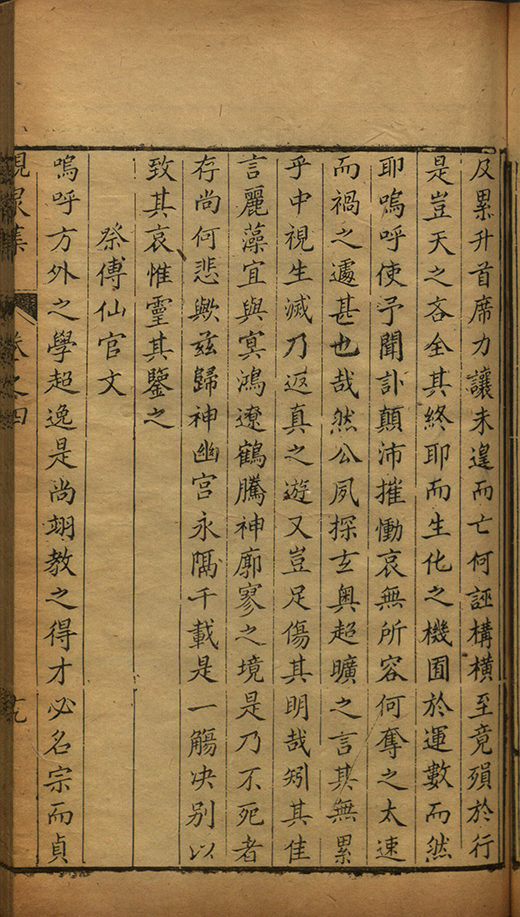 及累升首席力讓未遑而亡何誣構橫至竟殞於行
是豈天之吝全其終耶而生化之機囿於運數而然
耶嗚呼使予聞訃顛沛摧慟哀無所容何奪之太速
而禍之遽甚也哉然公夙探玄奧超曠之言其無累
乎中視生滅乃返真之遊又豈足傷其明哉矧其佳
言麗藻宜與冥鴻遼鶴騰神廓寥之境是乃不死者
存尚何悲歟茲歸神幽宮永隔千載是一觴決别以
致其哀惟靈其鑒之
祭傅仙官文
嗚呼方外之學超逸是尚翊教之得才必名宗而貞
峴泉集 卷之四